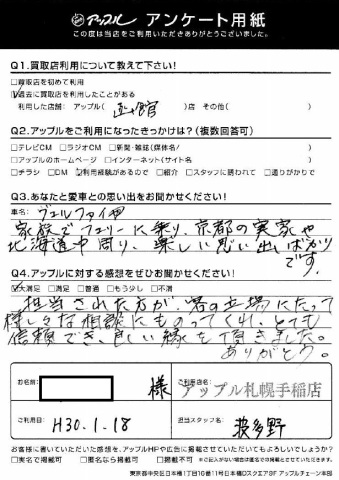 アップル アンケート用紙
この度は当店をご利用いただきありがとうございました。
Q1.買取店利用について教えて下さい!
□買取店を初めて利用
☑過去に買取店を利用したことがある
利用した店舗: アップル( )店 その他( )
Q2.アップルをご利用になったきっかけは?(複数回答可)
□テレビCM □ラジオCM □新聞・雑誌(媒体名 )
□アップルのホームページ □インターネット(サイト名 )
□チラシ □DM ☑利用経験があるので □紹介 □スタッフに誘われて □通りがかりで
Q3.あなたと愛車との思い出をお聞かせください!
車名: ヴェルファイア
家族でフェリーに乗り、京都の実家や
北海道中周り、楽しい思い出ばかり
です。
Q4.アップルに対する感想をぜひお聞かせください!
☑大満足 □満足 □普通 □もう少し □不満
担当された方が、客の立場にたって
様々な相談にものってくれ、とても
信頼でき、良い縁を頂きました。
ありがとう。
お名前: 様
ご利用店名: アップル札幌手稲店
ご利用日: H30.1.18
担当スタッフ名: 波多野
お客様に書いていただいた感想を、アップルHPや広告に掲載させていただいてもよろしいでしょうか?
□実名で掲載可 □匿名なら掲載可 □掲載不可 ※記入がない場合は匿名での掲載とさせていただきます。
東京都中央区日本橋1丁目16番11号日本橋Dスクエア8F アップルチェーン本部